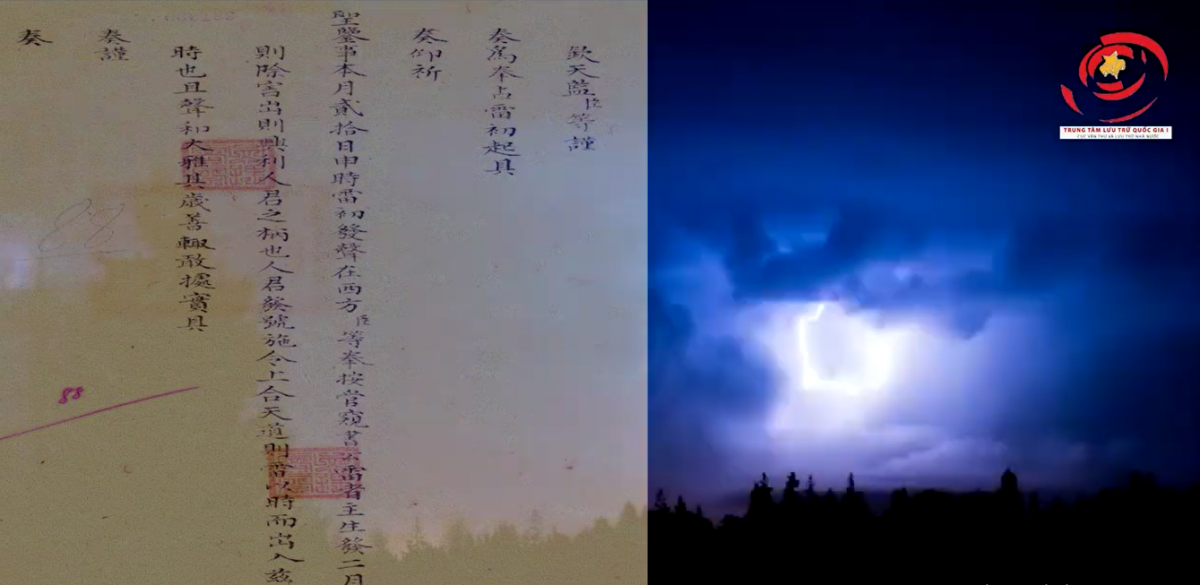 欽天監臣等謹
奏為奉占雷初起具
奏仰祈
聖鑒事本月貳拾日申時雷初發聲在西方臣等奉按管窺書云雷者主生發二月
則除害出則興利人君之柄也人君發號施令上合天道則雷以時而出入茲
時也且聲和大雅其歲善輒敢據實具
奏謹
奏
88
88
TRUNG TÂM LƯU TRỮ QUỐC GIA I
CỤC VĂN THƯ VÀ LƯU TRỮ NHÀ NƯỚC